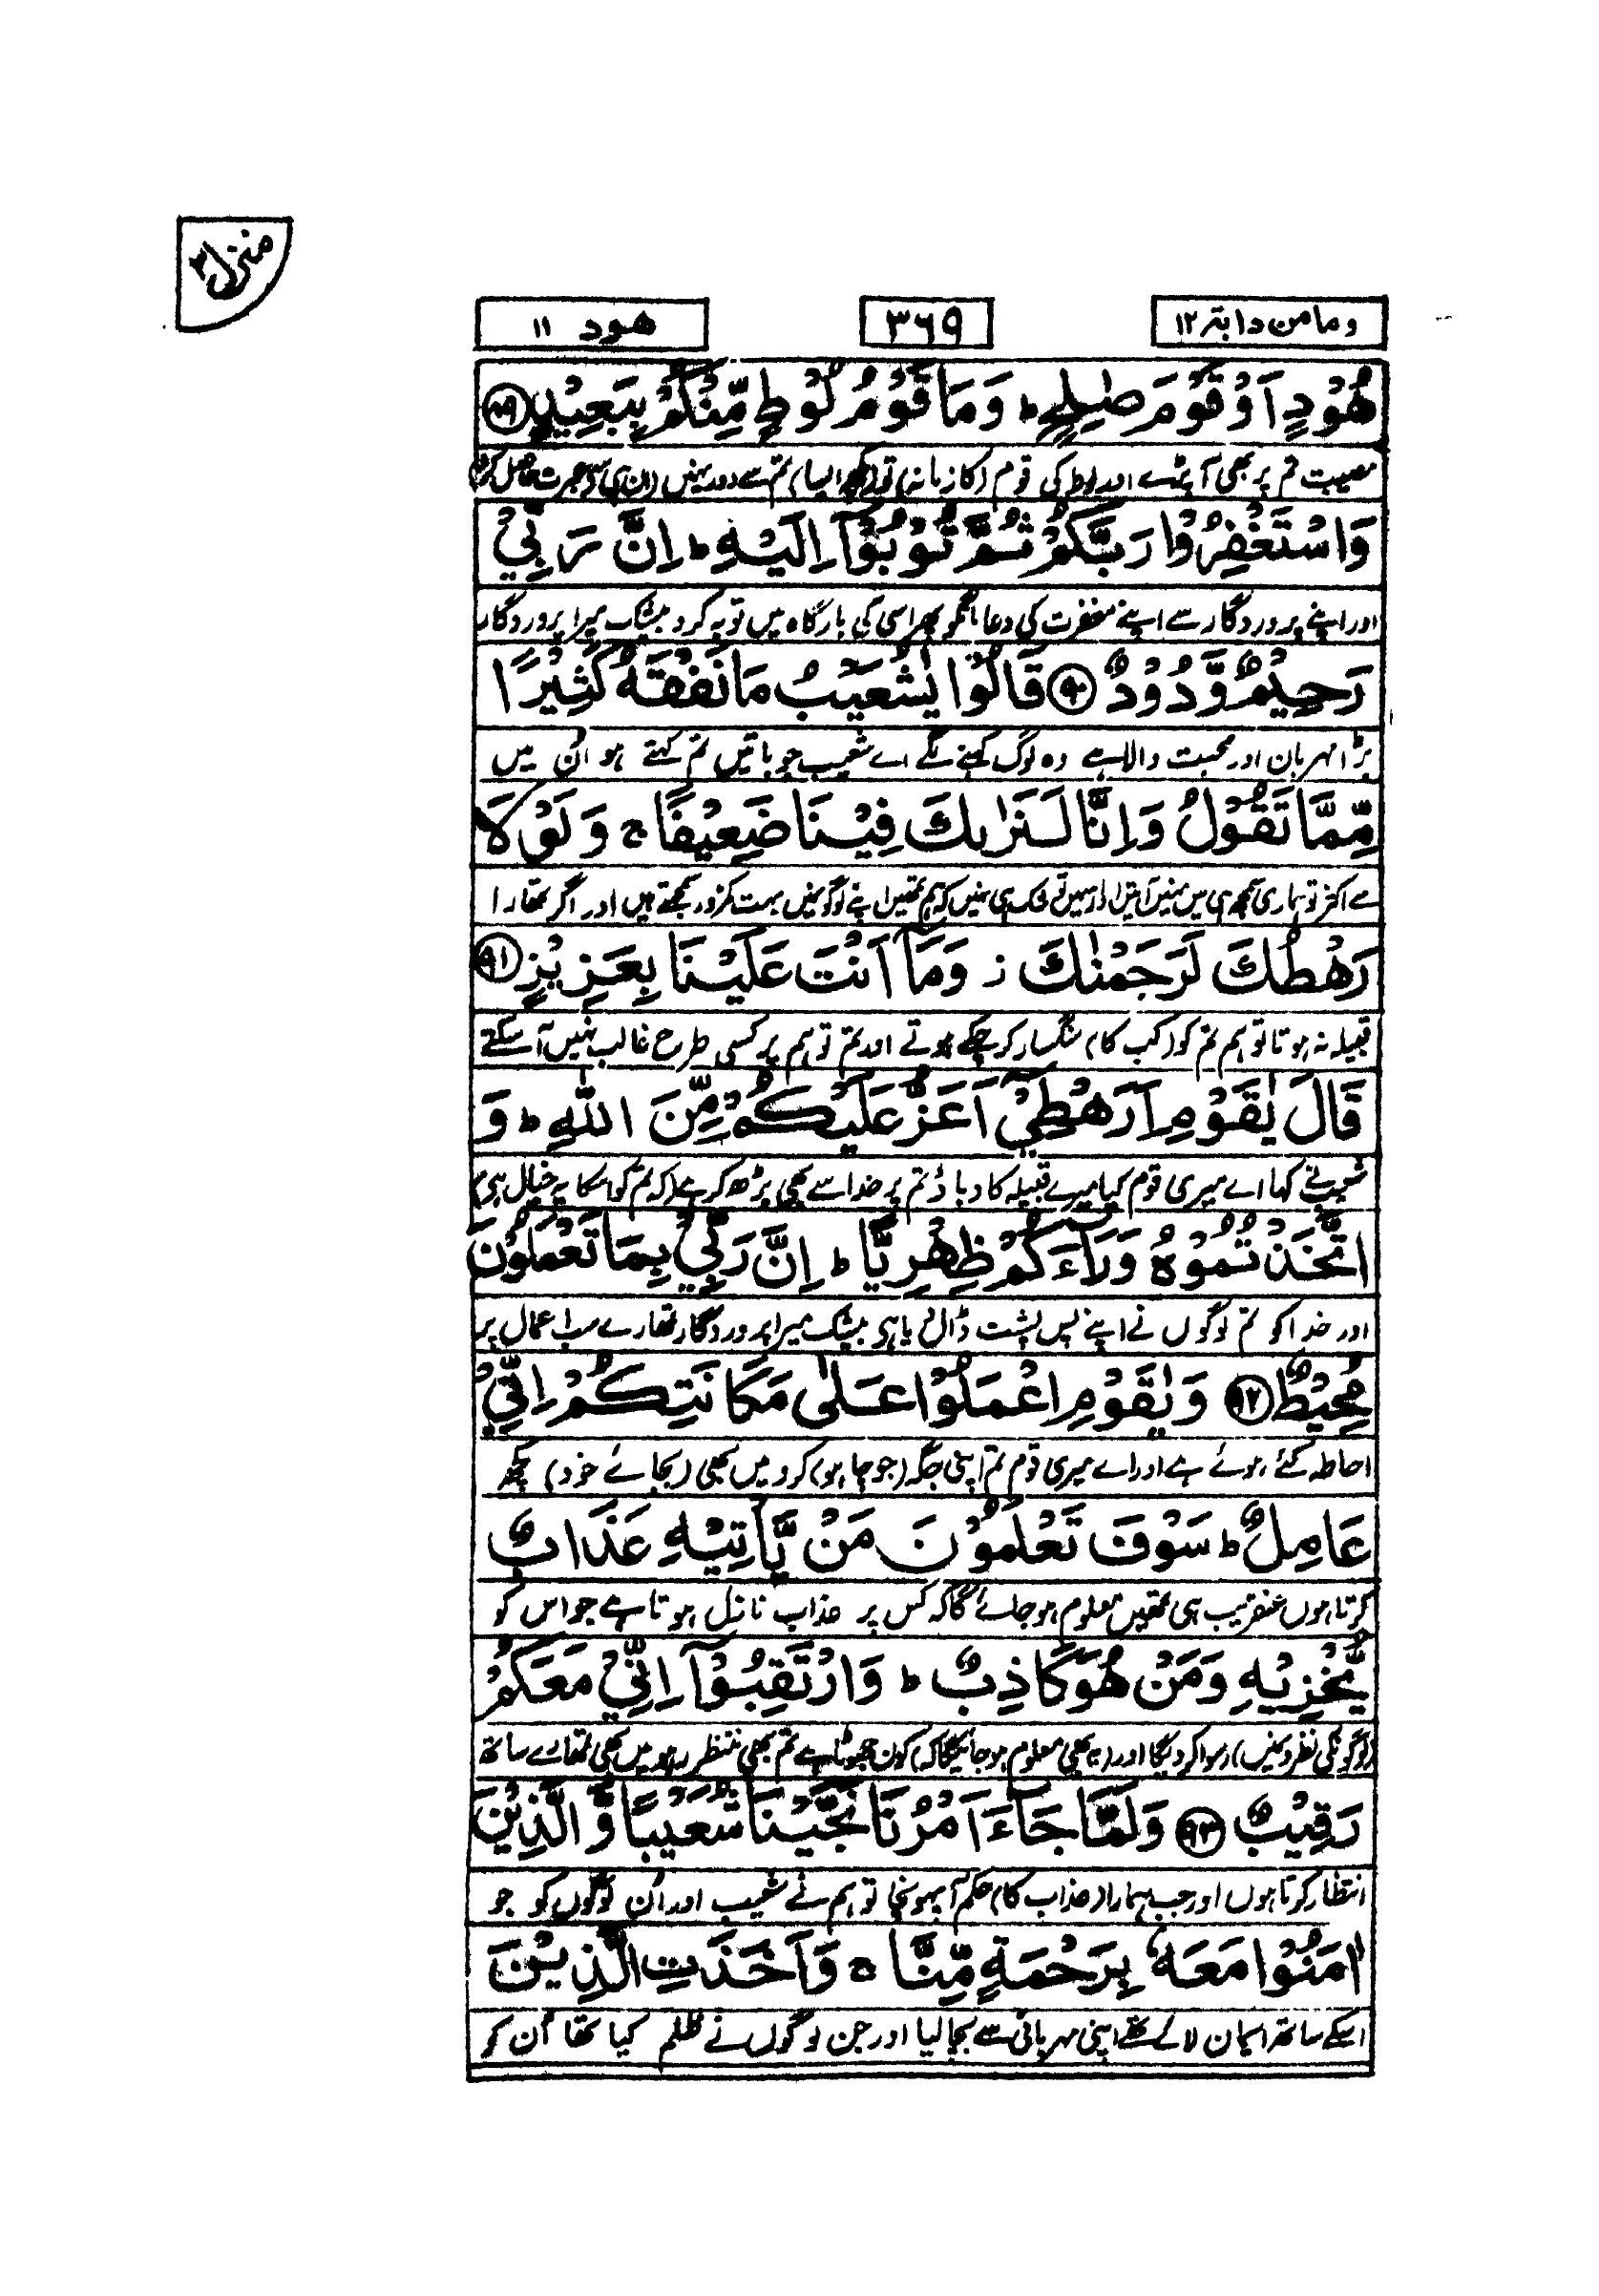 منزل ۳
ومامن دآبة ۱۲
۳۶۹
هود ۱۱
هُوْدٍ اَوْ قَوْمَ صٰلِحٍ ؕ وَمَا قَوْمُ لُوْطٍ مِّنْكُمْ بِبَعِیْدٍ ﴿۸۹﴾
مصیبت تم پر بھی آ پڑے اور لوط کی قوم (کا زمانہ) تو (کچھ ایسا) تم سے دور نہیں
وَاسْتَغْفِرُوْا رَبَّكُمْ ثُمَّ تُوْبُوْۤا اِلَیْهِ ؕ اِنَّ رَبِّیْ
اور اپنے پروردگار سے اپنے مغفرت کی دعا مانگو پھر اسی کی بارگاہ میں توبہ کرو بیشک میرا پروردگار
رَحِیْمٌ وَّدُوْدٌ ﴿۹۰﴾ قَالُوْا یٰشُعَیْبُ مَا نَفْقَهُ كَثِیْرًا
بڑا مہربان اور محبت والا ہے وہ لوگ کہنے لگے اے شعیب جو باتیں تم کہتے ہو اُن میں
مِّمَّا تَقُوْلُ وَاِنَّا لَنَرٰىكَ فِیْنَا ضَعِیْفًا ۚ وَلَوْلَا
سے اکثر تو ہماری سمجھ ہی میں نہیں آتیں اور اس میں تو شک ہی نہیں کہ ہم تمھیں اپنے لوگوں میں بہت کمزور سمجھتے ہیں اور اگر تمھارا
رَهْطُكَ لَرَجَمْنٰكَ ؗ وَمَاۤ اَنْتَ عَلَیْنَا بِعَزِیْزٍ ﴿۹۱﴾
قبیلہ نہ ہوتا تو ہم تم کو (کب کا) سنگسار کر چکے ہوتے اور تم تو ہم پر کسی طرح غالب نہیں آ سکتے
قَالَ یٰقَوْمِ اَرَهْطِیْۤ اَعَزُّ عَلَیْكُمْ مِّنَ اللّٰهِ ؕ وَ
شعیب نے کہا اے میری قوم کیا میرے قبیلہ کا دباؤ تم پر خدا سے بھی بڑھ کر ہے (کہ تم کو اسکا یہ خیال ہی)
اتَّخَذْتُمُوْهُ وَرَآءَكُمْ ظِهْرِیًّا ؕ اِنَّ رَبِّیْ بِمَا تَعْمَلُوْنَ
اور خدا کو تم لوگوں نے اپنے پس پشت ڈال دیا ہی بیشک میرا پروردگار تمھارے سب اعمال پر
مُحِیْطٌ ﴿۹۲﴾ وَیٰقَوْمِ اعْمَلُوْا عَلٰی مَكَانَتِكُمْ اِنِّیْ
احاطہ کئے ہوئے ہے اور اے میری قوم تم اپنی جگہ (جو چاہو) کرو میں بھی (بجائے خود) کچھ
عَامِلٌ ؕ سَوْفَ تَعْلَمُوْنَ مَنْ یَّاْتِیْهِ عَذَابٌ
کرتا ہوں عنقریب ہی تمھیں معلوم ہو جائے گا کہ کس پر عذاب نازل ہوتا ہے جو اس کو
یُّخْزِیْهِ وَمَنْ هُوَ كَاذِبٌ ؕ وَارْتَقِبُوْۤا اِنِّیْ مَعَكُمْ
(لوگونکی نظروں میں) رسوا کر دیگا اور (یہ بھی معلوم ہو جائیگا کہ) کون جھوٹا ہے تم بھی منتظر رہو میں بھی تمھارے ساتھ
رَقِیْبٌ ﴿۹۳﴾ وَلَمَّا جَآءَ اَمْرُنَا نَجَّیْنَا شُعَیْبًا وَّالَّذِیْنَ
انتظار کرتا ہوں اور جب ہمارا (عذاب کا) حکم آ پہونچا تو ہم نے شعیب اور اُن لوگوں کو جو
اٰمَنُوْا مَعَهٗ بِرَحْمَةٍ مِّنَّا ۚ وَاَخَذَتِ الَّذِیْنَ
اسکے ساتھ ایمان لائے تھے اپنی مہربانی سے بچا لیا اور جن لوگوں نے ظلم کیا تھا اُن کو